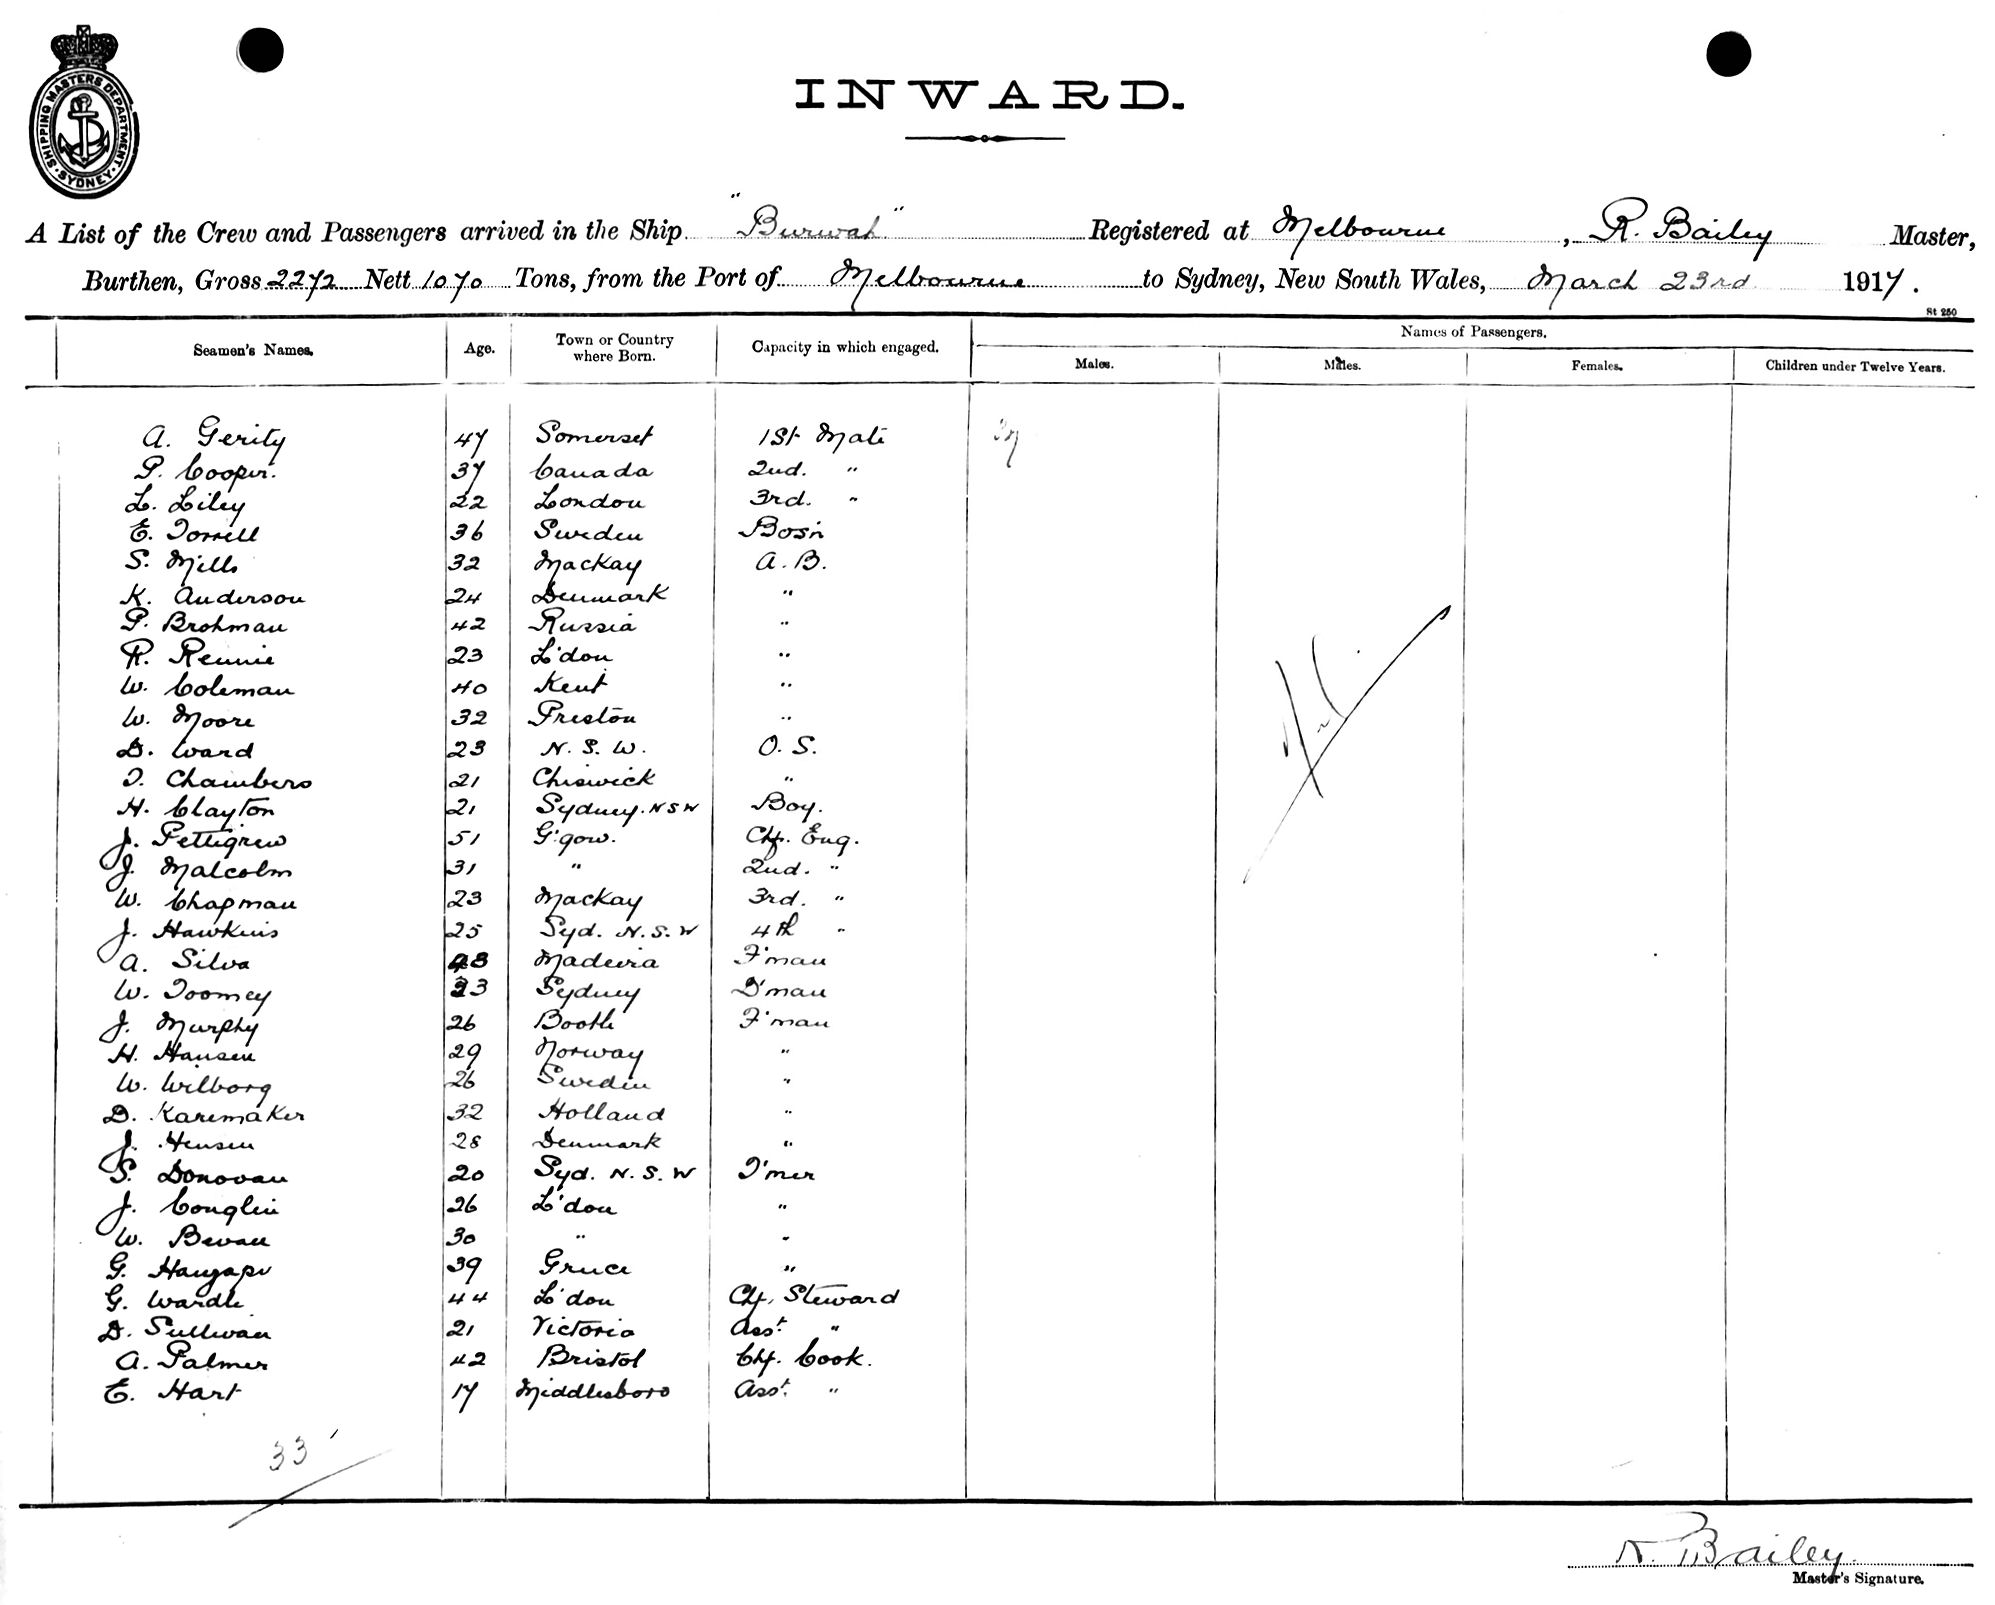 SHIPPING MASTERS DEPARTMENT · SYDNEY ·
INWARD.
A List of the Crew and Passengers arrived in the Ship "Burwah" Registered at Melbourne, R. Bailey Master,
Burthen, Gross 2272 Nett 1070 Tons, from the Port of Melbourne to Sydney, New South Wales, March 23rd 1917.
St 250
Seamen's Names. Age. Town or Country where Born. Capacity in which engaged. Names of Passengers.
Males. Males. Females. Children under Twelve Years.
A. Gerity 47 Somerset 1st Mate
P. Cooper. 37 Canada 2nd. "
L. Liley 22 London 3rd. "
E. Torrell 36 Sweden Bosn
S. Mills 32 Mackay A.B.
K. Anderson 24 Denmark "
P. Brohman 42 Russia "
R. Rennie 23 L'don "
W. Coleman 40 Kent "
W. Moore 32 Preston "
D. Ward 23 N.S.W. O.S.
T. Chambers 21 Chiswick "
H. Clayton 21 Sydney. NSW Boy.
J. Pettigrew 51 G'gow. Chf. Eng.
J. Malcolm 31 " 2nd. "
W. Chapman 23 Mackay 3rd. "
J. Hawkins 25 Syd. N.S.W 4th "
A. Silva 43 Madeira F'man
W. Toomey 23 Sydney D'man
J. Murphy 26 Bootle F'man
H. Hansen 29 Norway "
W. Wilborg 26 Sweden "
D. Karemaker 32 Holland "
J. Hensen 28 Denmark "
S. Donovan 20 Syd. N.S.W T'mer
J. Conglin 26 L'don "
W. Bevan 30 " "
G. 39 Greece "
G. Wardle 44 L'don Chf. Steward
D. Sullivan 21 Victoria Asst. "
A. Palmer 42 Bristol Chf. Cook.
E. Hart 17 Middlesboro Asst. "
33
R. Bailey.
Master's Signature.